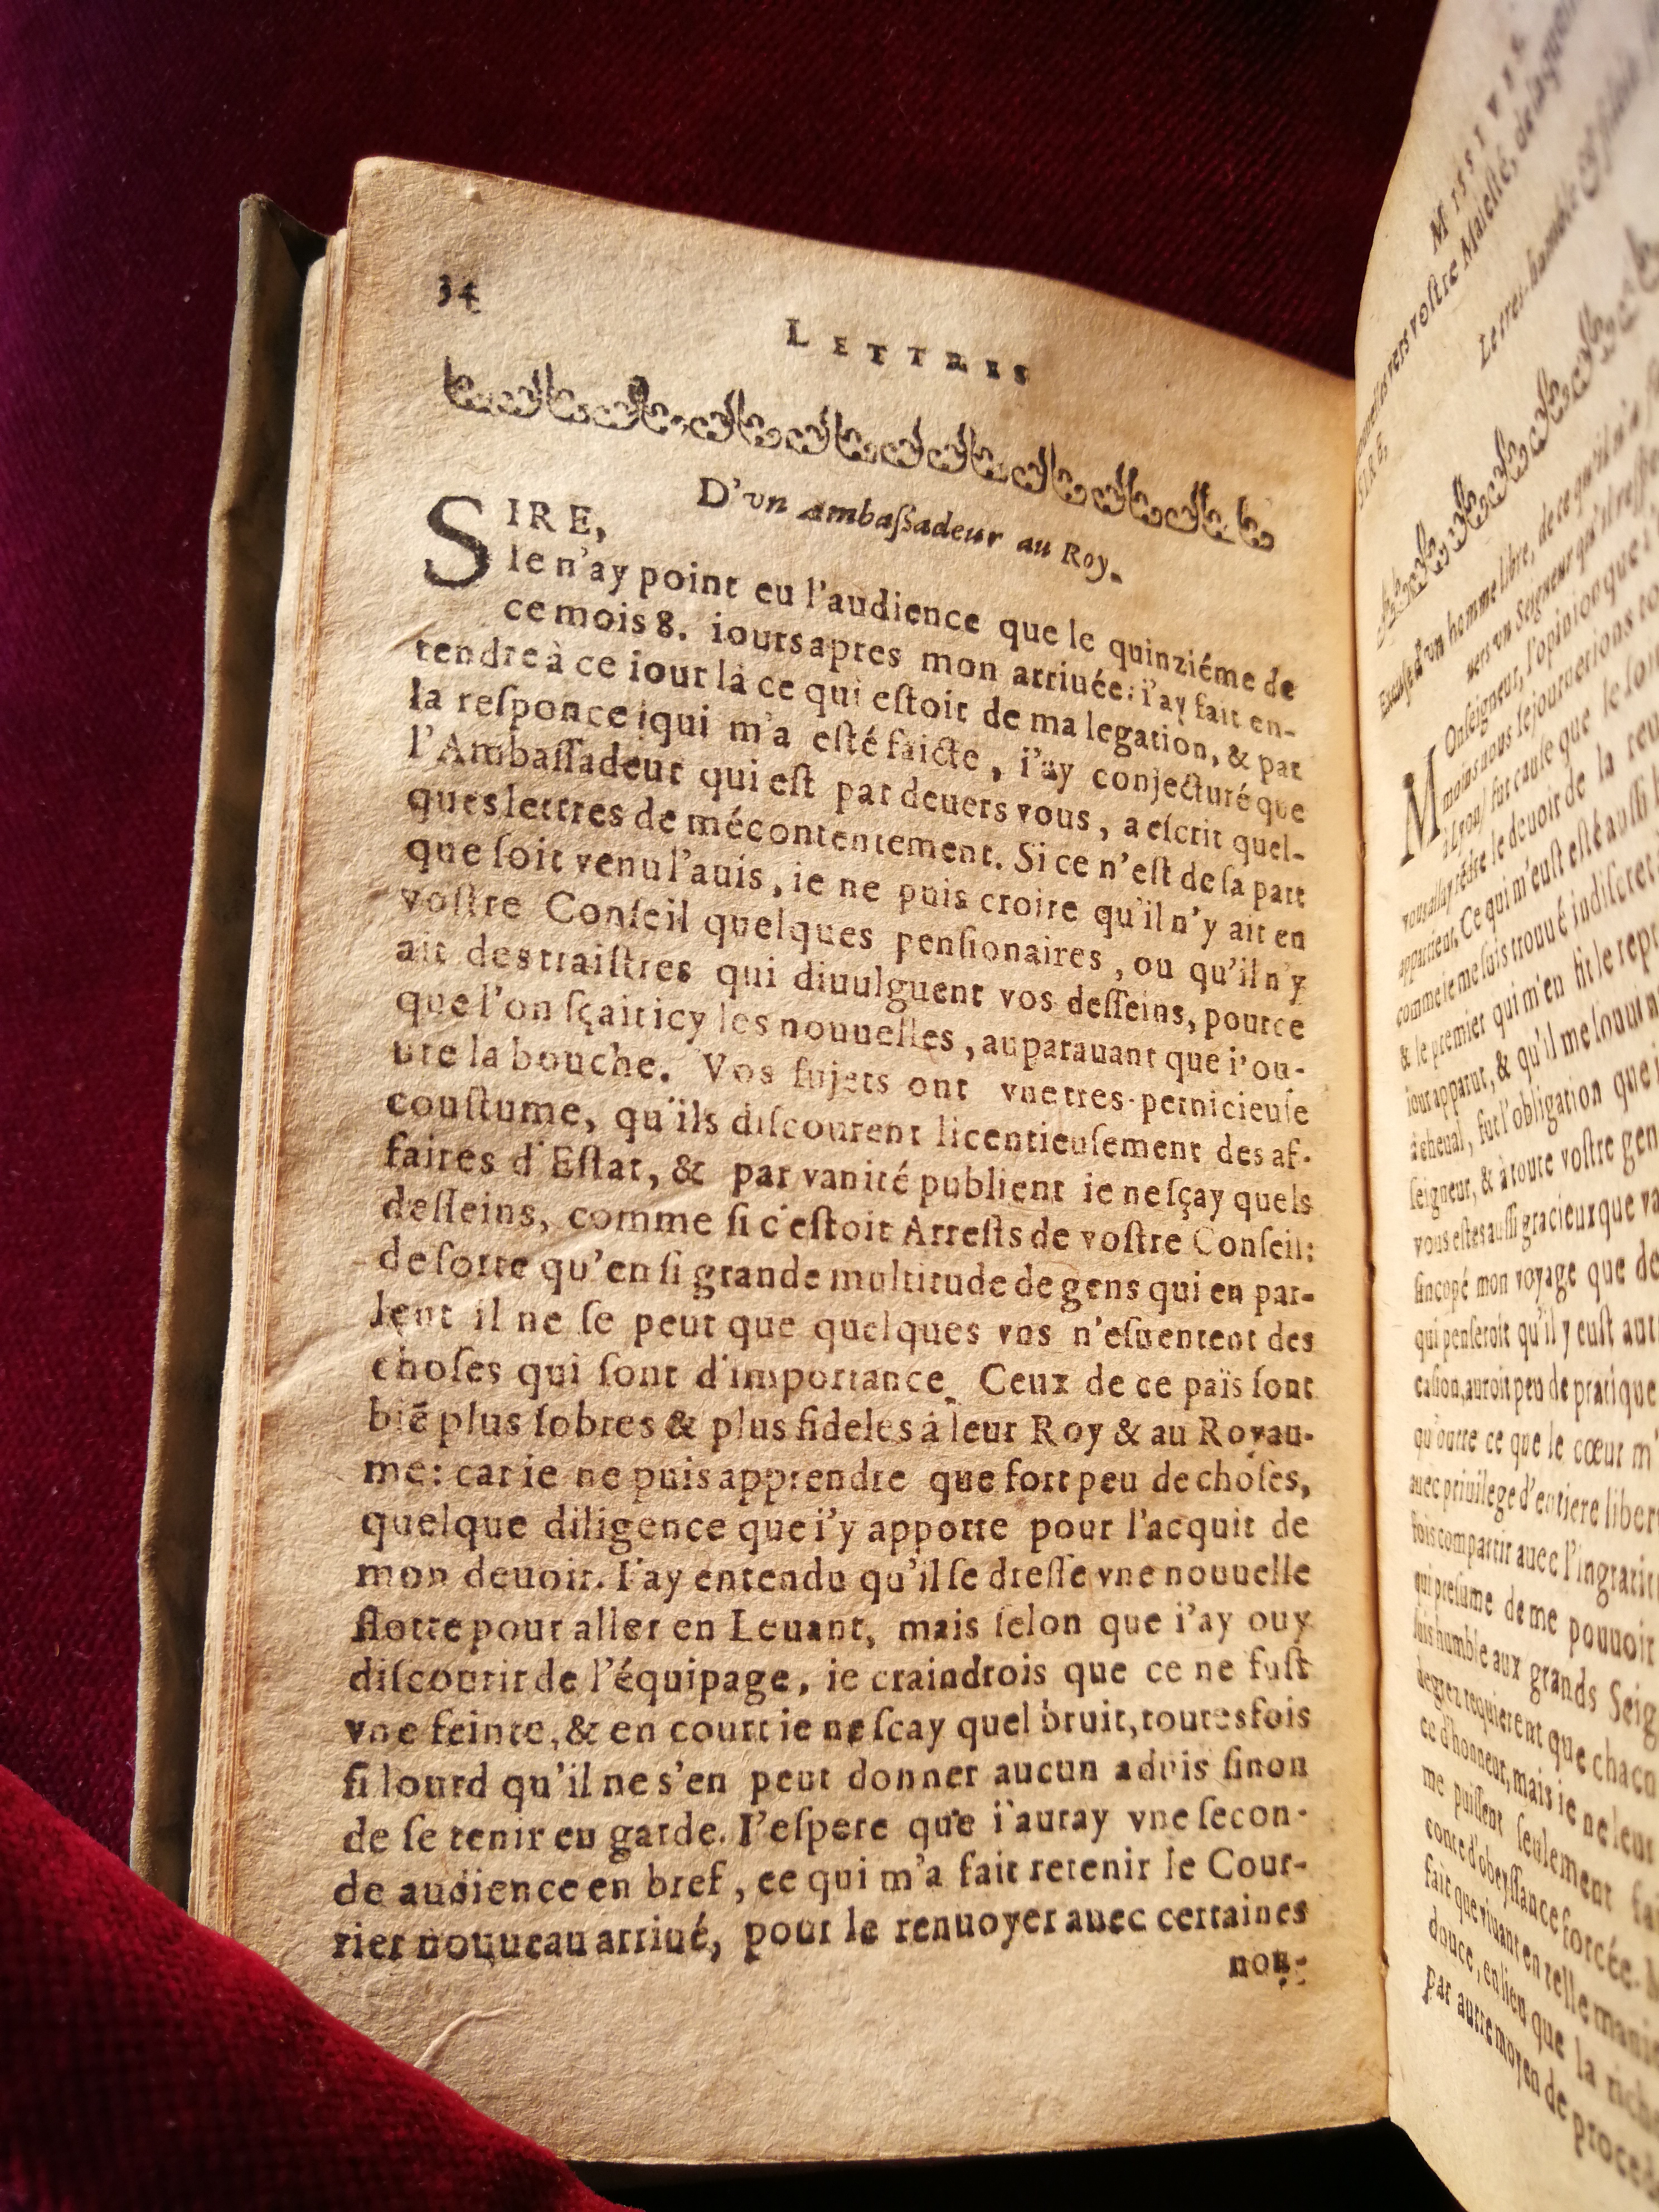 34
LETTRES
D'vn Ambaſſadeur au Roy.
SIRE,
Ie n'ay point eu l'audience que le quinziéme de
ce mois 8. iours apres mon arriuée: i'ay fait en-
tendre à ce iour là ce qui eſtoit de ma legation, & par
la reſponce qui m'a eſté faicte, i'ay conjecturé que
l'Ambaſſadeur qui eſt par deuers vous, a eſcrit quel-
ques lettres de mécontentement. Si ce n'eſt de ſa part
que ſoit venu l'auis, ie ne puis croire qu'il n'y ait en
voſtre Conſeil quelques penſionaires, ou qu'il n'y
ait des traiſtres qui diuulguent vos deſſeins, pource
que l'on ſçait icy les nouuelles, auparauant que i'ou-
ure la bouche. Vos ſujets ont vne tres-pernicieuſe
couſtume, qu'ils diſcourent licentieuſement des af-
faires d'Eſtat, & par vanité publient ie ne ſçay quels
deſſeins, comme ſi c'eſtoit Arreſts de voſtre Conſeil:
de ſorte qu'en ſi grande multitude de gens qui en par-
lent il ne ſe peut que quelques vns n'eſuentent des
choſes qui ſont d'importance. Ceux de ce païs ſont
biē plus ſobres & plus fideles à leur Roy & au Royau-
me: car ie ne puis apprendre que fort peu de choſes,
quelque diligence que i'y apporte pour l'acquit de
mon deuoir. I'ay entendu qu'il ſe dreſſe vne nouuelle
flotte pour aller en Leuant, mais ſelon que i'ay ouy
diſcourir de l'équipage, ie craindrois que ce ne fuſt
vne feinte, & en court ie ne ſcay quel bruit, toutesfois
ſi lourd qu'il ne s'en peut donner aucun aduis ſinon
de ſe tenir en garde. I'eſpere que i'auray vne ſecon-
de audience en bref, ce qui m'a fait retenir le Cour-
rier nouueau arriué, pour le renuoyer auec certaines
nou-
MISSIVES
vers voſtre Maieſté,
SIRE,
Le tres-humble &
Excuſe d'vn homme libre, de ce qu'il n'a
vers vn Seigneur qu'il
MOnſeigneur, l'opinion que i
moins nous ſejournerions
à Lyon, fut cauſe que ie
le deuoir de la
appartient. Ce qui m'euſt eſté auſſi
comme ie me ſuis trouué indiſcret
& le premier qui m'en fit le
iour apparut, & qu'il me
à cheual, fut l'obligation que
ſeigneur, & à toute voſtre
vous eſtes auſſi gracieux que
ſincopé mon voyage que de
qui penſeroit qu'il y euſt
caſion, auroit peu de pratique
qu'outre ce que le cœur m'
auec priuilege d'entiere
fois compatir auec
qui preſume de me pouuoir
ſuis humble aux grands
degrez requierent que
ce d'honneur, mais ie ne leur
me puiſſent ſeulement
conte d'obeyſſance forcée.
fait que viuant en telle
douce, en lieu que la
par autre moyen de